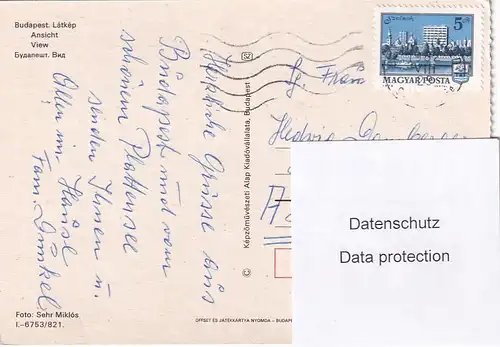 Budapest. Látkép
Ansicht
View
Будапешт. Вид
Herzliche Grüsse aus
Budapest und vom
schönen Plattensee
senden Ihnen u.
Allen im Hause
Fam. Dinkel
Foto: Sehr Miklós
I.-6753/821.
© Képzőművészeti Alap Kiadóvállalata, Budapest
OFFSET ÉS JÁTÉKKÁRTYA NYOMDA – BUDAPE
5 Ft
Szolnok
MAGYAR POSTA
Frau
Hedwig
A-
Datenschutz
Data protection